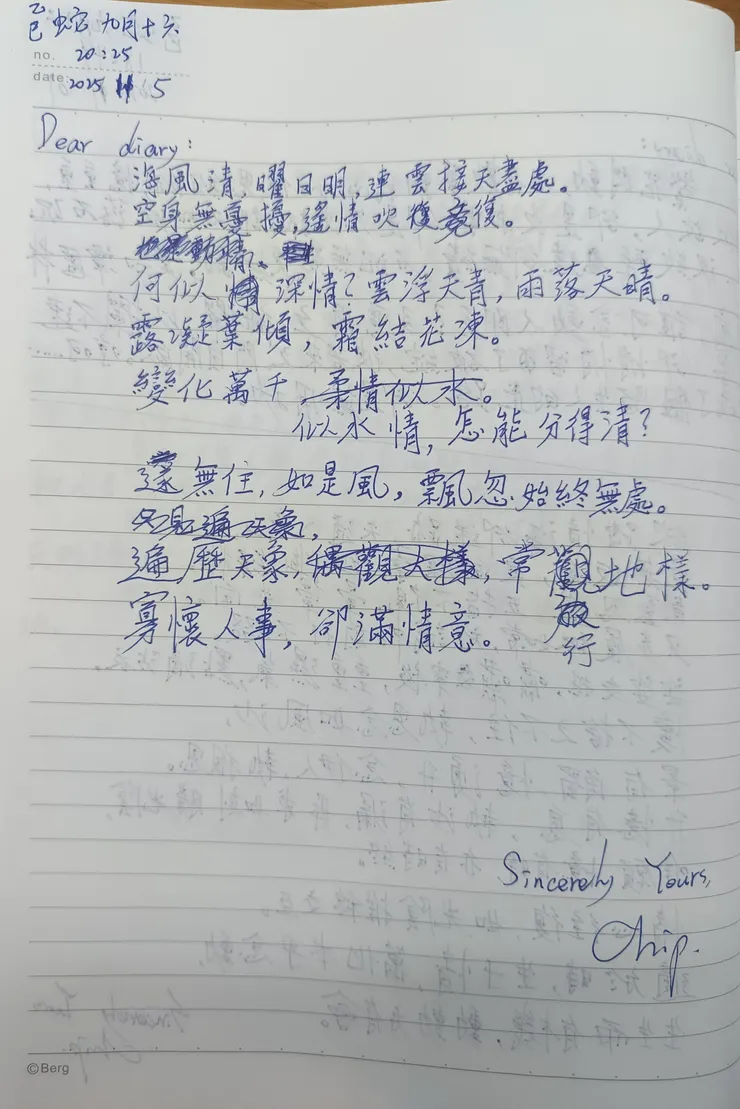 乙巳 蛇 九月十六
no. 20:25
date: 2025 11 5
Dear diary:
海風清 曜日明,連雲接天盡處。
空身無憂擾,遙情吹復竟復。
何似 深情?雲浮天青,雨落天晴。
露凝葉傾,霜結花凍。
變化萬千,柔情似水。
似水情,怎能分得清?
遂無住,如是風,飄忽始終無處。
遍歷天象,偶觀大樣,常觀地樣。
寡懷人事,卻滿情意。
放
行
Sincerely Yours,
Chip.
©Berg